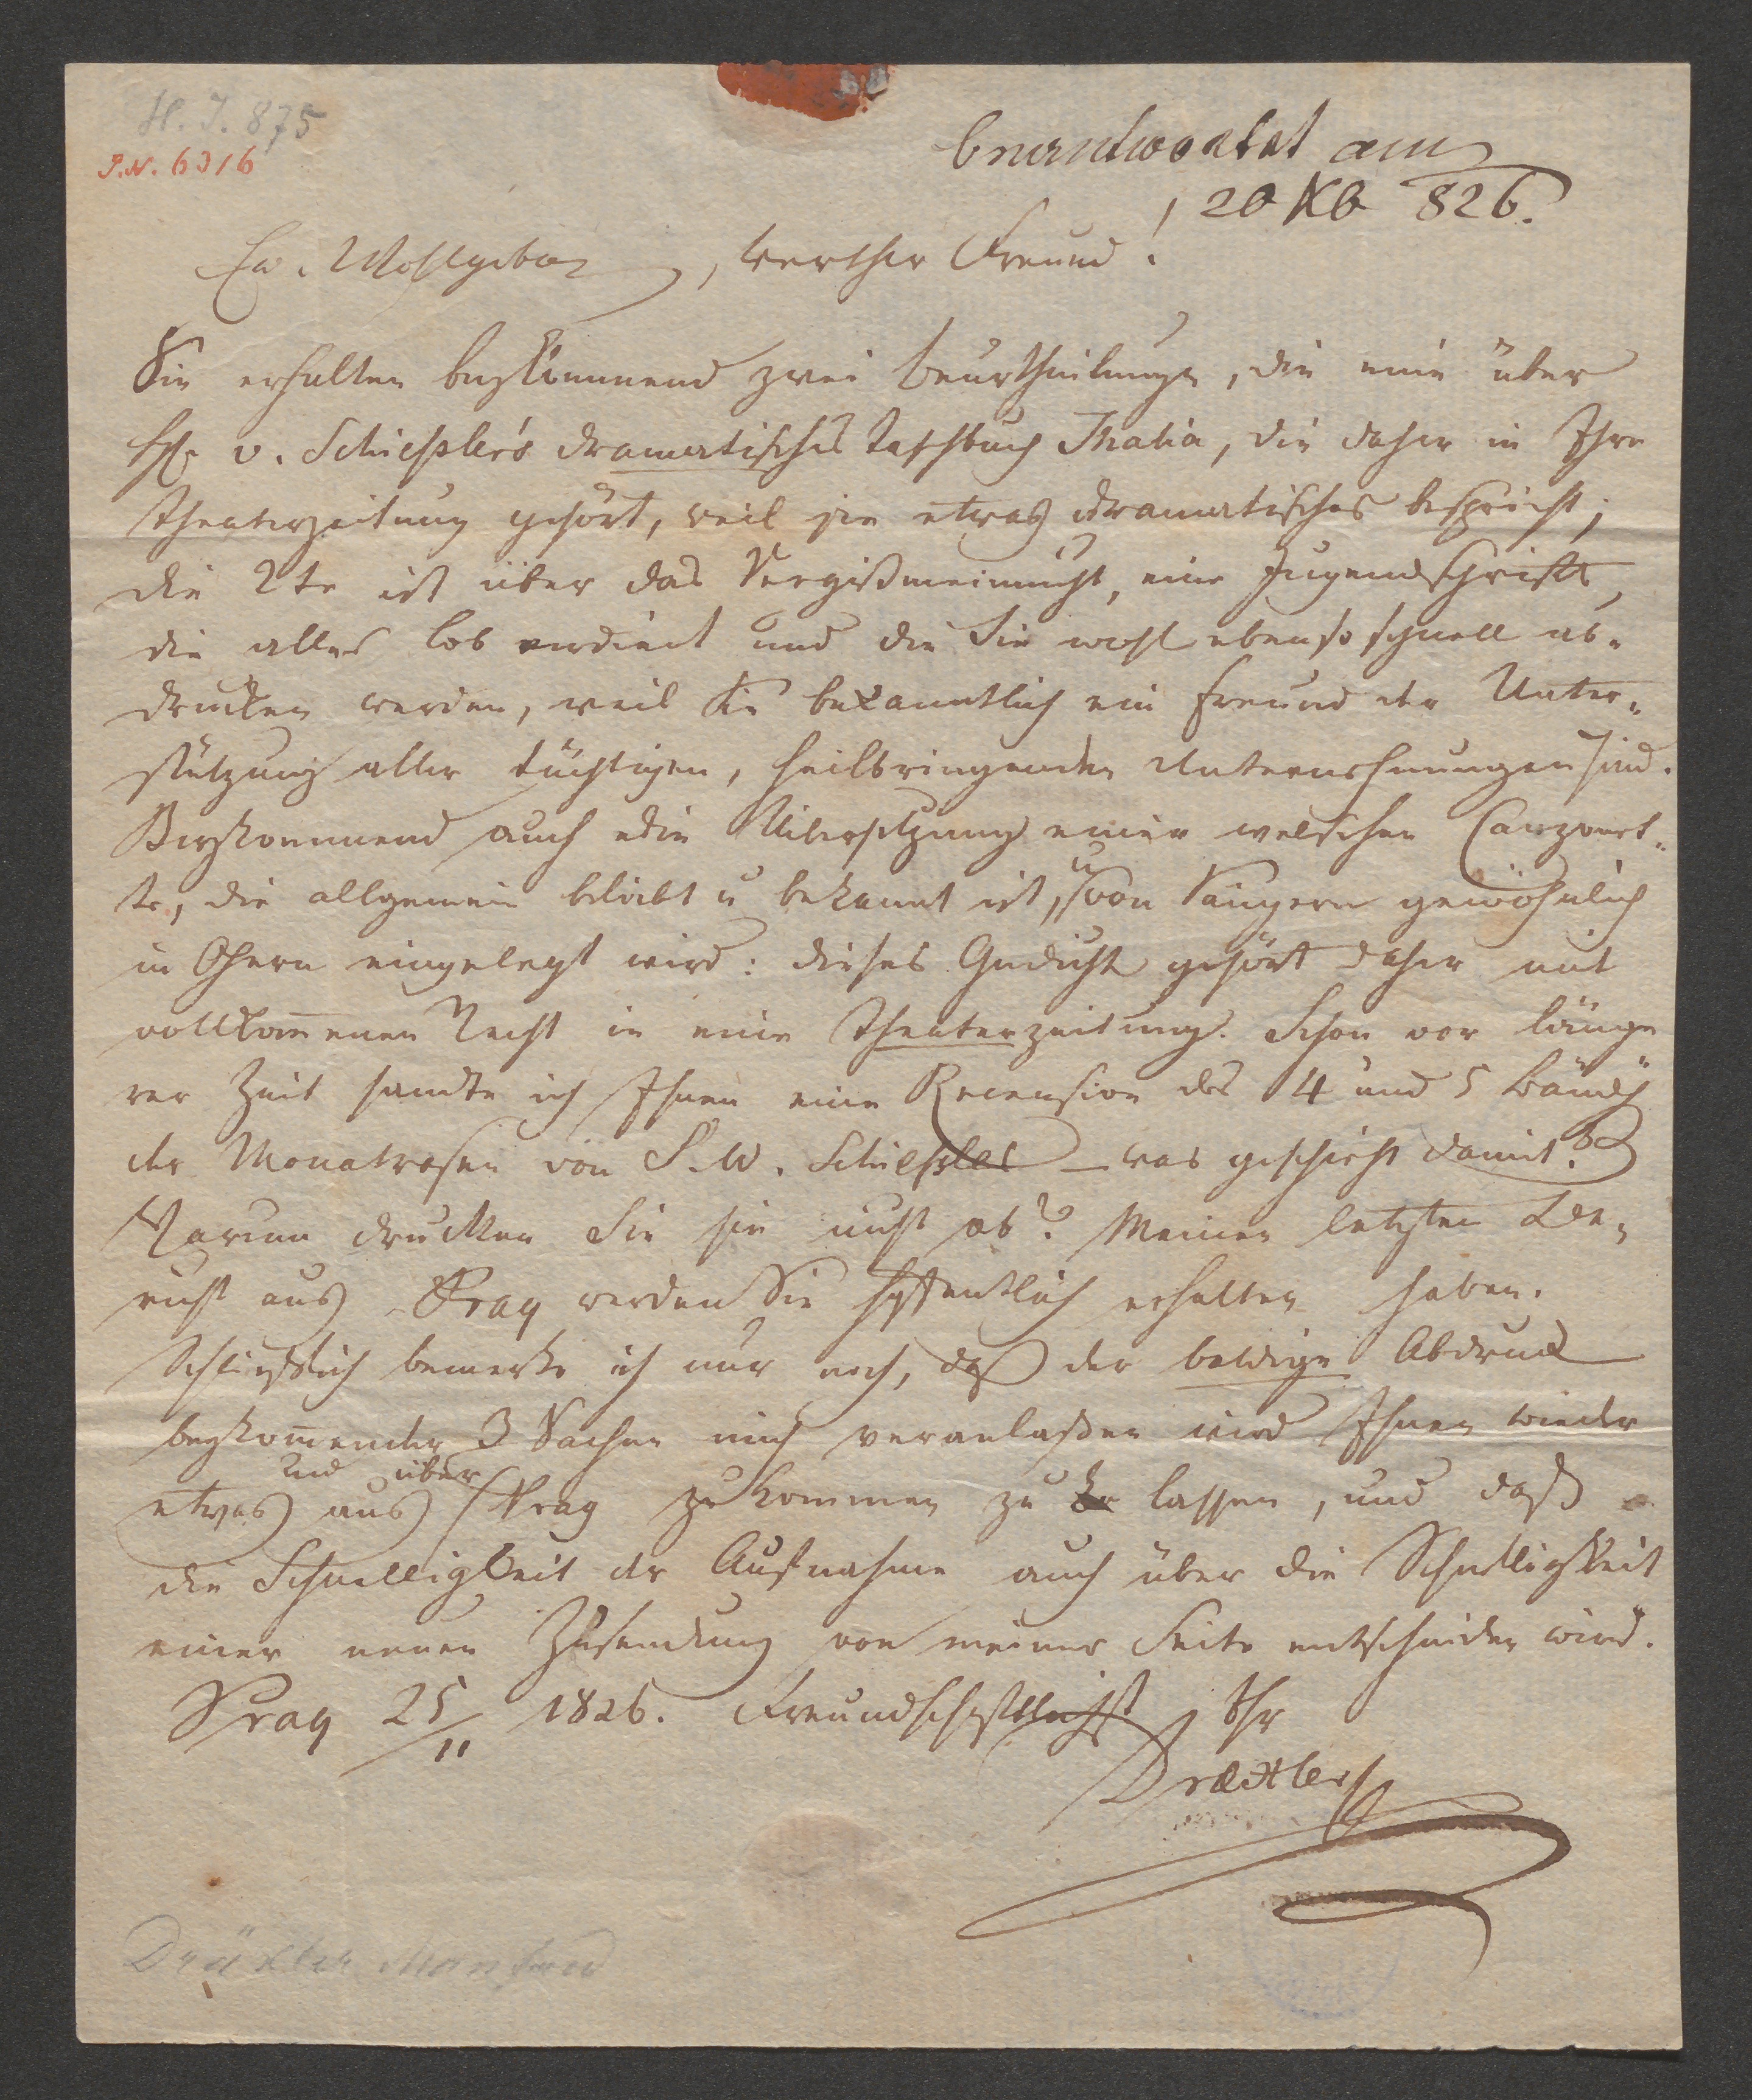 H. I. 875
I.N. 6316
beantwortet am
20 Xb 826.
Ew. Wohlgeboren, werther Freund!
Sie erhalten beykommend zwei Beurtheilungen, die eine über
H. v. Schießler's dramatisches Taschbuch Thalia, die daher in Ihre
Theaterzeitung gehört, weil sie etwas dramatisches bespricht;
die 2te ist über das Vergißmeinnicht, eine Jugendschrift,
die alles Lob verdient und die Sie wohl ebenso schnell ab„
drucken werden, weil Sie bekanntlich ein Freund der Unter„
stützung aller tüchtigen, heilbringenden Unternehmungen sind.
Beykommend auch die Uibersetzung einer welschen Canzonet„
te, die allgemein beliebt u bekannt ist, u von Sängern gewöhnlich
in Opern eingelegt wird: dieses Gedicht gehört daher mit
vollkom̅enen Recht in eine Theaterzeitung. Schon vor länge
rer Zeit sandte ich Ihnen eine Recension des 4 und 5 Bändch
der Monatrosen von S. W. Schießler – was geschieht damit?
Warum drucken Sie sie nicht ab? Meinen letzten Be„
richt aus Prag werden Sie hoffentlich erhalten haben.
Schließlich bemerke ich nur noch, daß der baldige Abdruck
beykom̅ender 3 Sachen mich veranlaßen wird Ihnen wieder
etwas aus und über Prag zukommen zu lassen, und daß
die Schnelligkeit der Aufnahme auch über die Schnelligkeit
einer neuen Zusendung von meiner Seite entscheiden wird.
Prag 25/11 1826. Freundschaftlichst Ihr
Dräxler
Dräxler Manfred